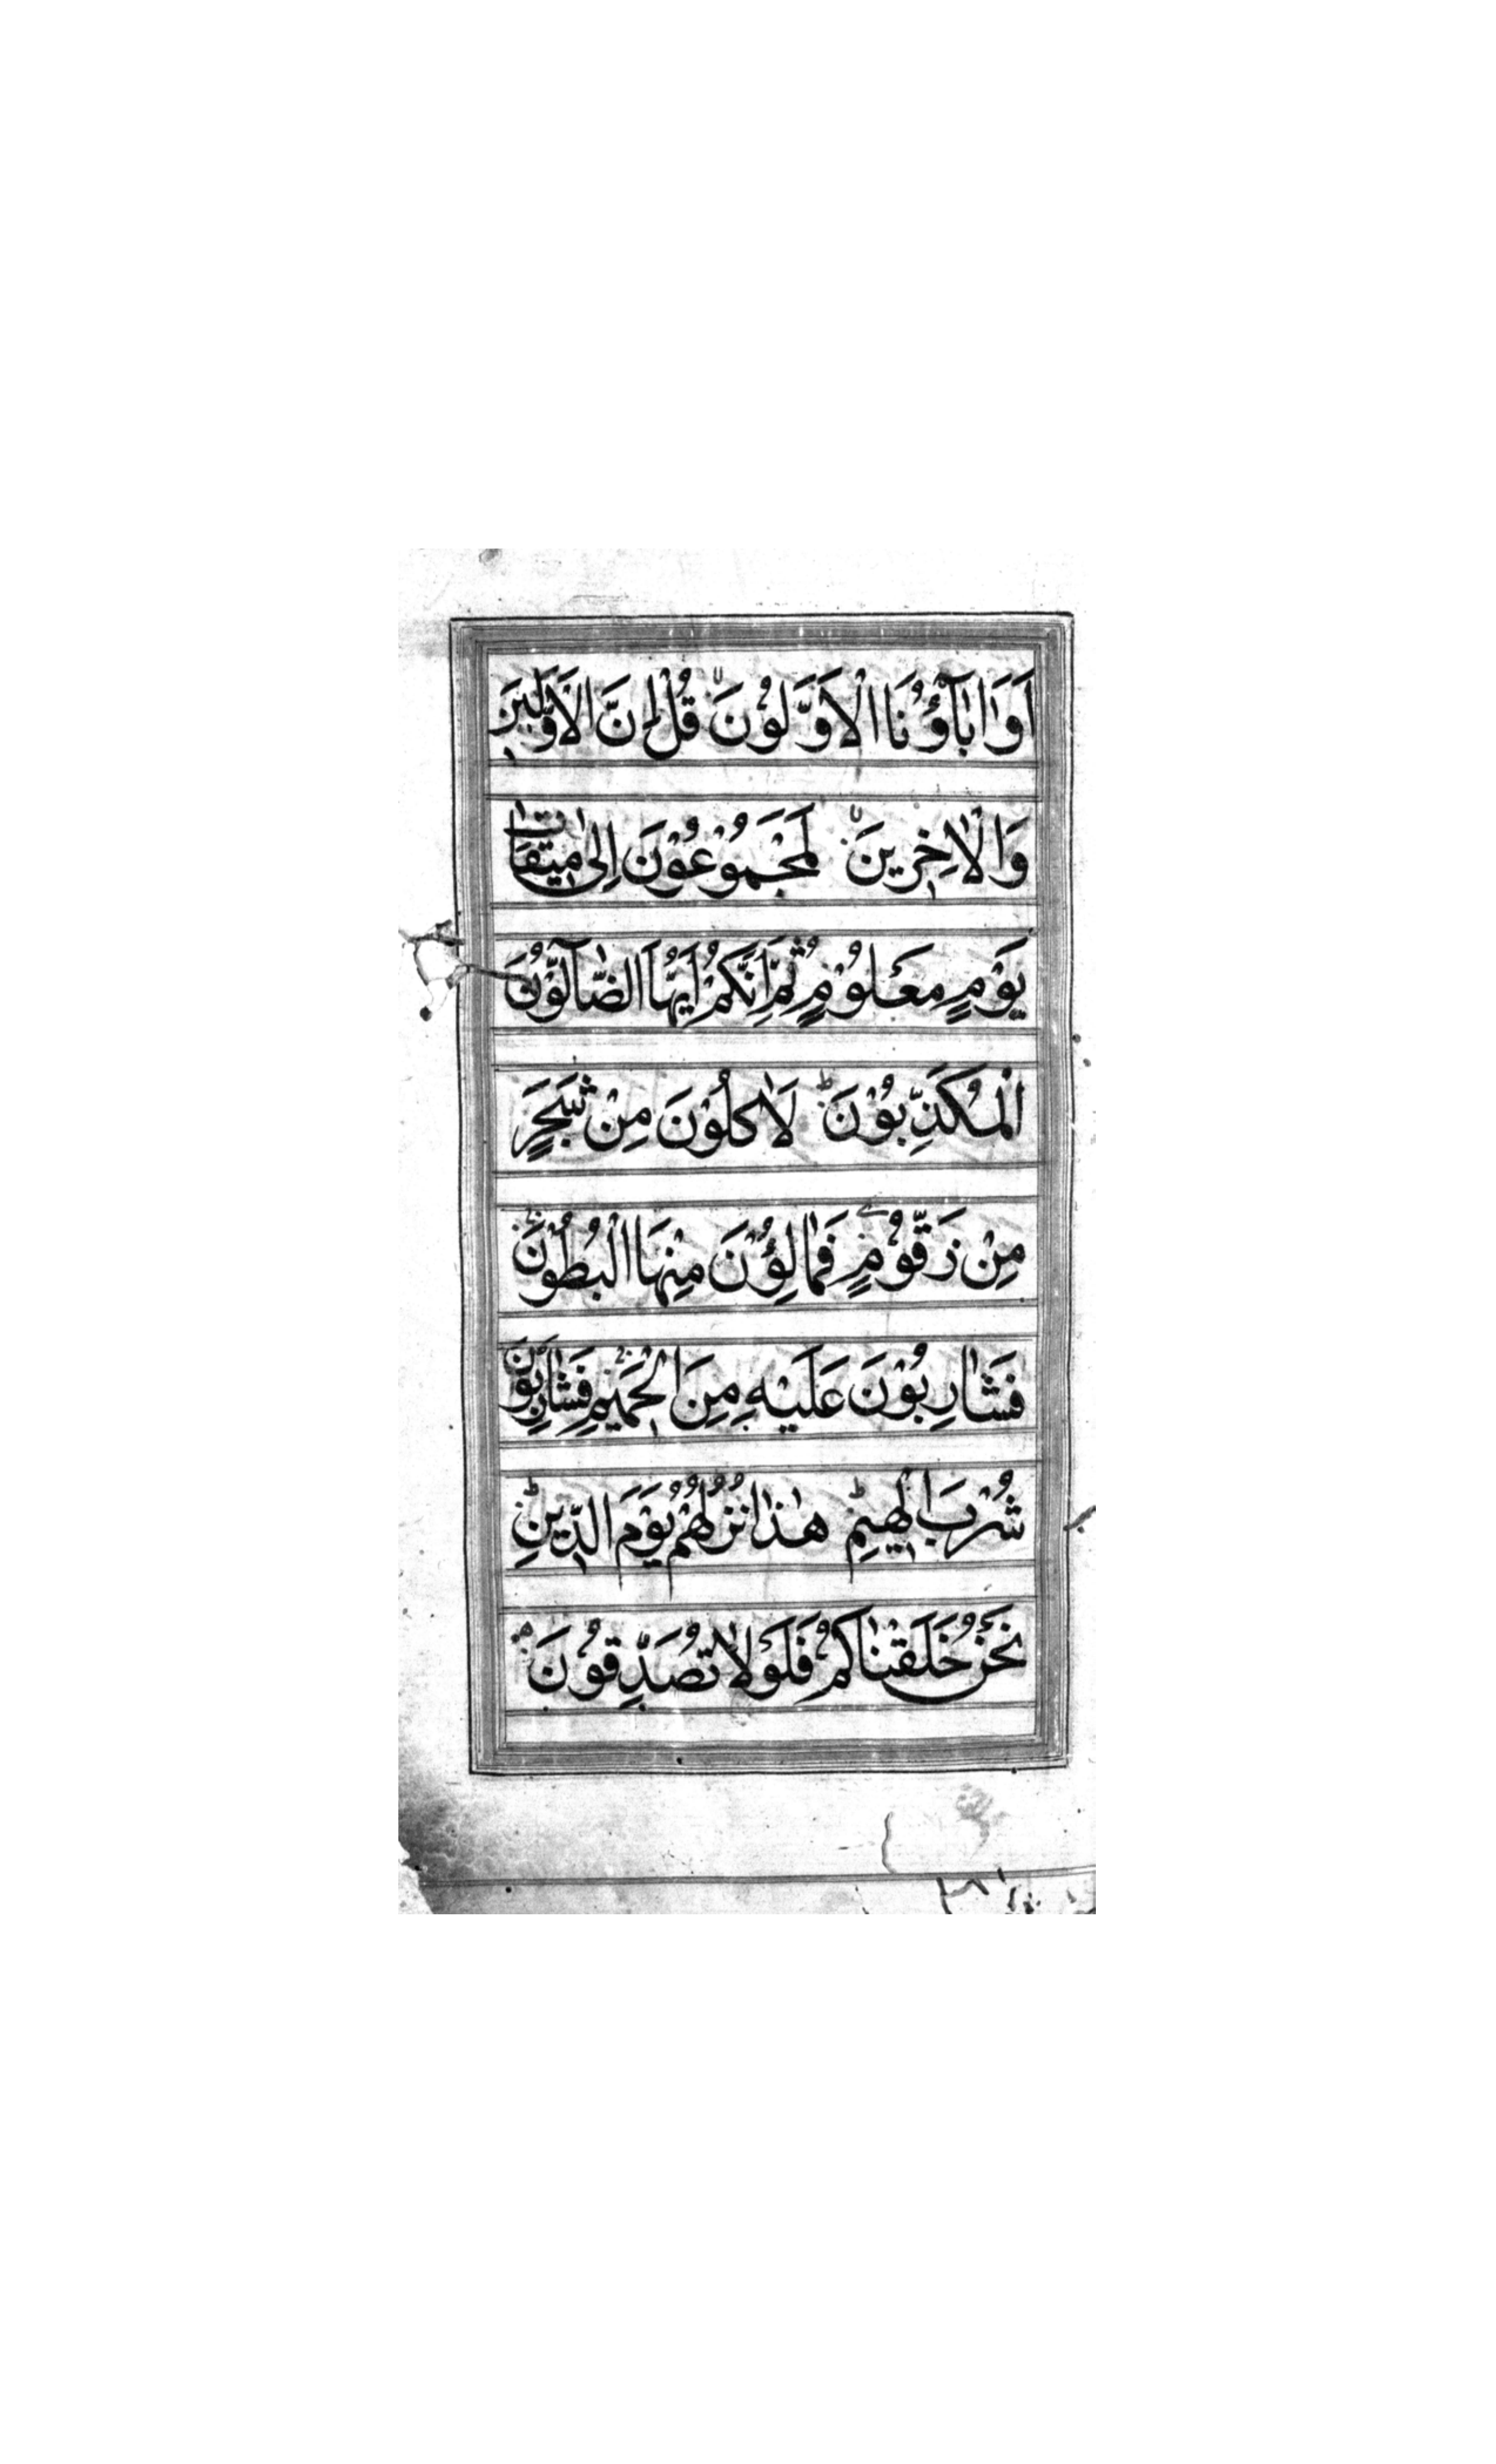 اَوَاٰبَآؤُنَا الْاَوَّلُوْنَ قُلْ اِنَّ الْاَوَّلِيْنَ
وَالْاٰخِرِيْنَ لَمَجْمُوْعُوْنَ اِلٰى مِيْقَاتِ
يَوْمٍ مَعْلُوْمٍ ثُمَّ اِنَّكُمْ اَيُّهَا الضَّآلُّوْنَ
الْمُكَذِّبُوْنَ لَاٰكِلُوْنَ مِنْ شَجَرٍ
مِنْ زَقُّوْمٍ فَمَالِؤُنَ مِنْهَا الْبُطُوْنَ
فَشَارِبُوْنَ عَلَيْهِ مِنَ الْحَمِيْمِ فَشَارِبُوْنَ
شُرْبَ الْهِيْمِ هٰذَا نُزُلُهُمْ يَوْمَ الدِّيْنِ
نَحْنُ خَلَقْنَاكُمْ فَلَوْلَا تُصَدِّقُوْنَ